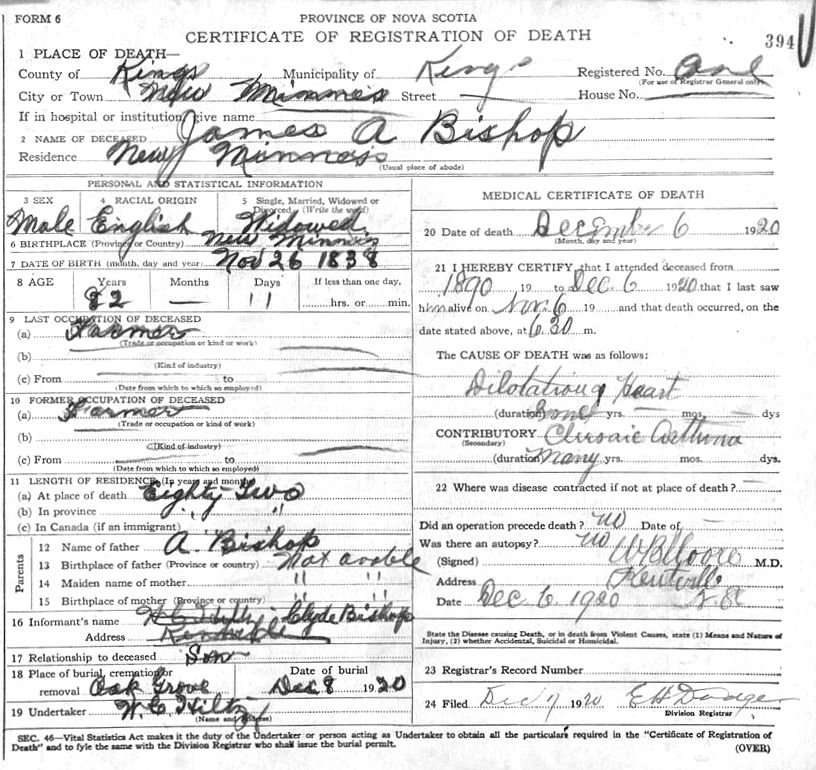 FORM 6
PROVINCE OF NOVA SCOTIA
CERTIFICATE OF REGISTRATION OF DEATH
394
1 PLACE OF DEATH—
County of Kings Municipality of Kings Registered No. One
(For use of Registrar General only)
City or Town New Minnes Street — House No. —
If in hospital or institution, give name
2 NAME OF DECEASED James A Bishop
Residence New Minness
(Usual place of abode)
PERSONAL AND STATISTICAL INFORMATION
3 SEX 4 RACIAL ORIGIN 5 Single, Married, Widowed or Divorced (Write the word)
Male English Widowed
6 BIRTHPLACE (Province or Country) New Minnis
7 DATE OF BIRTH (month, day and year) Nov 26 1838
8 AGE Years Months Days If less than one day,
82 — 11 hrs. or min.
9 LAST OCCUPATION OF DECEASED
(a) Farmer
(Trade or occupation or kind of work)
(b)
(Kind of industry)
(c) From to
(Date from which to which so employed)
10 FORMER OCCUPATION OF DECEASED
(a) Farmer
(Trade or occupation or kind of work)
(b)
(Kind of industry)
(c) From to
(Date from which to which so employed)
11 LENGTH OF RESIDENCE (In years and months)
(a) At place of death Eighty Two
(b) In province " "
(c) In Canada (if an immigrant)
Parents
12 Name of father A. Bishop
13 Birthplace of father (Province or country) Not avoble
14 Maiden name of mother " "
15 Birthplace of mother (Province or country) " "
16 Informant's name W C Hiltz Clyde Bishop
Address Kentville
17 Relationship to deceased Son
18 Place of burial, cremation or removal Oak Grove Date of burial Dec 8 1920
19 Undertaker W. C. Hiltz
(Name and Address)
MEDICAL CERTIFICATE OF DEATH
20 Date of death December 6 1920
(Month, day and year)
21 I HEREBY CERTIFY, that I attended deceased from
1890 19 to Dec. 6 1920 that I last saw
him alive on Nov. 6 19 and that death occurred, on the
date stated above, at 6.30 m.
The CAUSE OF DEATH was as follows:
Dilotation of Heart
(duration) Some yrs. — mos. — dys
CONTRIBUTORY Chronic Asthma
(Secondary)
(duration) Many yrs. mos. dys.
22 Where was disease contracted if not at place of death? —
Did an operation precede death? no Date of —
Was there an autopsy? no
(Signed) W B Moore M.D.
Address Kentville
Date Dec 6. 1920 N.S.
State the Disease causing Death, or in death from Violent Causes, state (1) Means and Nature of
Injury, (2) whether Accidental, Suicidal or Homicidal.
23 Registrar's Record Number
24 Filed Dec 7 1920 E H Dodge
Division Registrar
SEC. 46—Vital Statistics Act makes it the duty of the Undertaker or person acting as Undertaker to obtain all the particulars required in the "Certificate of Registration of
Death" and to fyle the same with the Division Registrar who shall issue the burial permit.
(OVER)